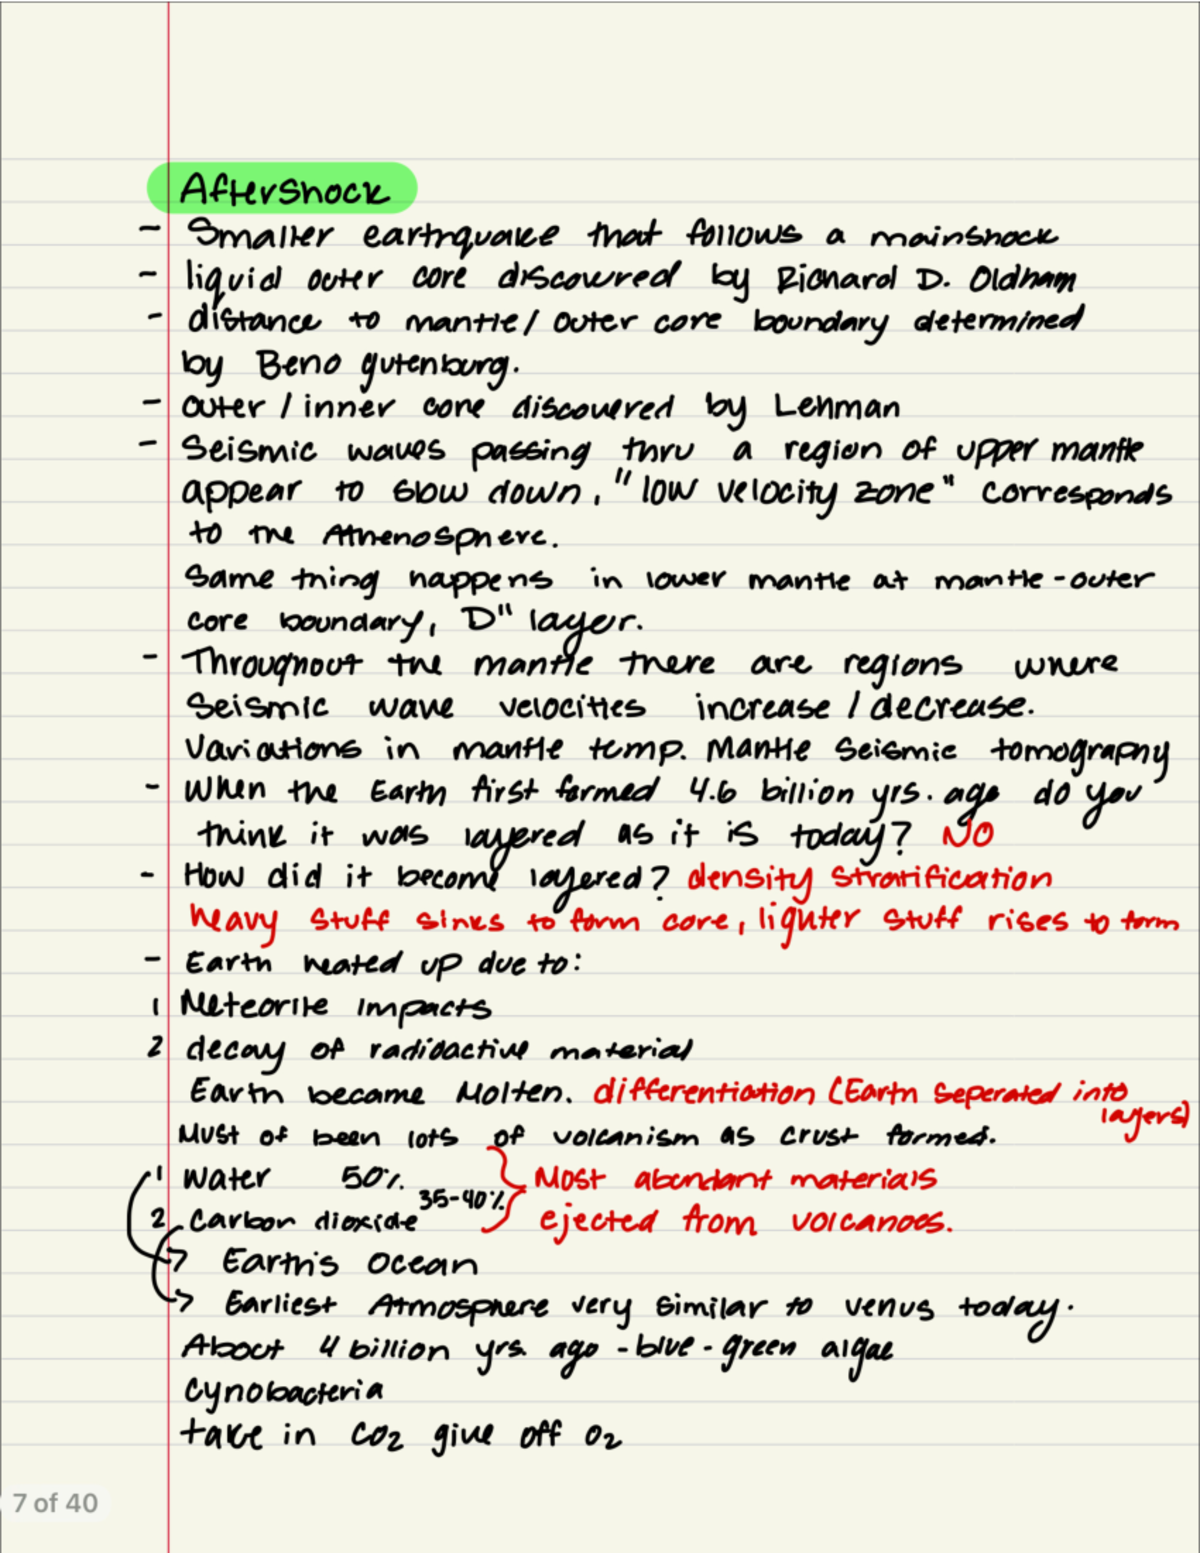 Aftershock
- Smaller earthquake that follows a mainshock
- liquid outer core discovered by Richard D. Oldham
- distance to mantle/outer core boundary determined
by Beno gutenburg.
- outer/inner core discovered by Lehman
- Seismic waves passing thru a region of upper mantle
appear to slow down, "low velocity zone" corresponds
to the Athenosphere.
Same thing happens in lower mantle at mantle-outer
core boundary, D" layer.
- Throughout the mantle there are regions where
Seismic wave velocities increase/decrease.
Variations in mantle temp. Mantle Seismic tomography
- When the Earth first formed 4.6 billion yrs. ago do you
think it was layered as it is today? NO
- How did it become layered? density stratification
heavy stuff sinks to form core, lighter stuff rises to form
- Earth heated up due to:
1 Meteorite Impacts
2 decay of radioactive material
Earth became Molten. differentiation (Earth seperated into
layers)
Must of been lots of volcanism as crust formed.
1 Water 50% Most abundant materials
2 Carbon dioxide 35-40% ejected from volcanoes.
→ Earth's Ocean
→ Earliest Atmosphere very similar to venus today.
About 4 billion yrs. ago - blue-green algae
cynobacteria
take in CO2 give off O2
7 of 40